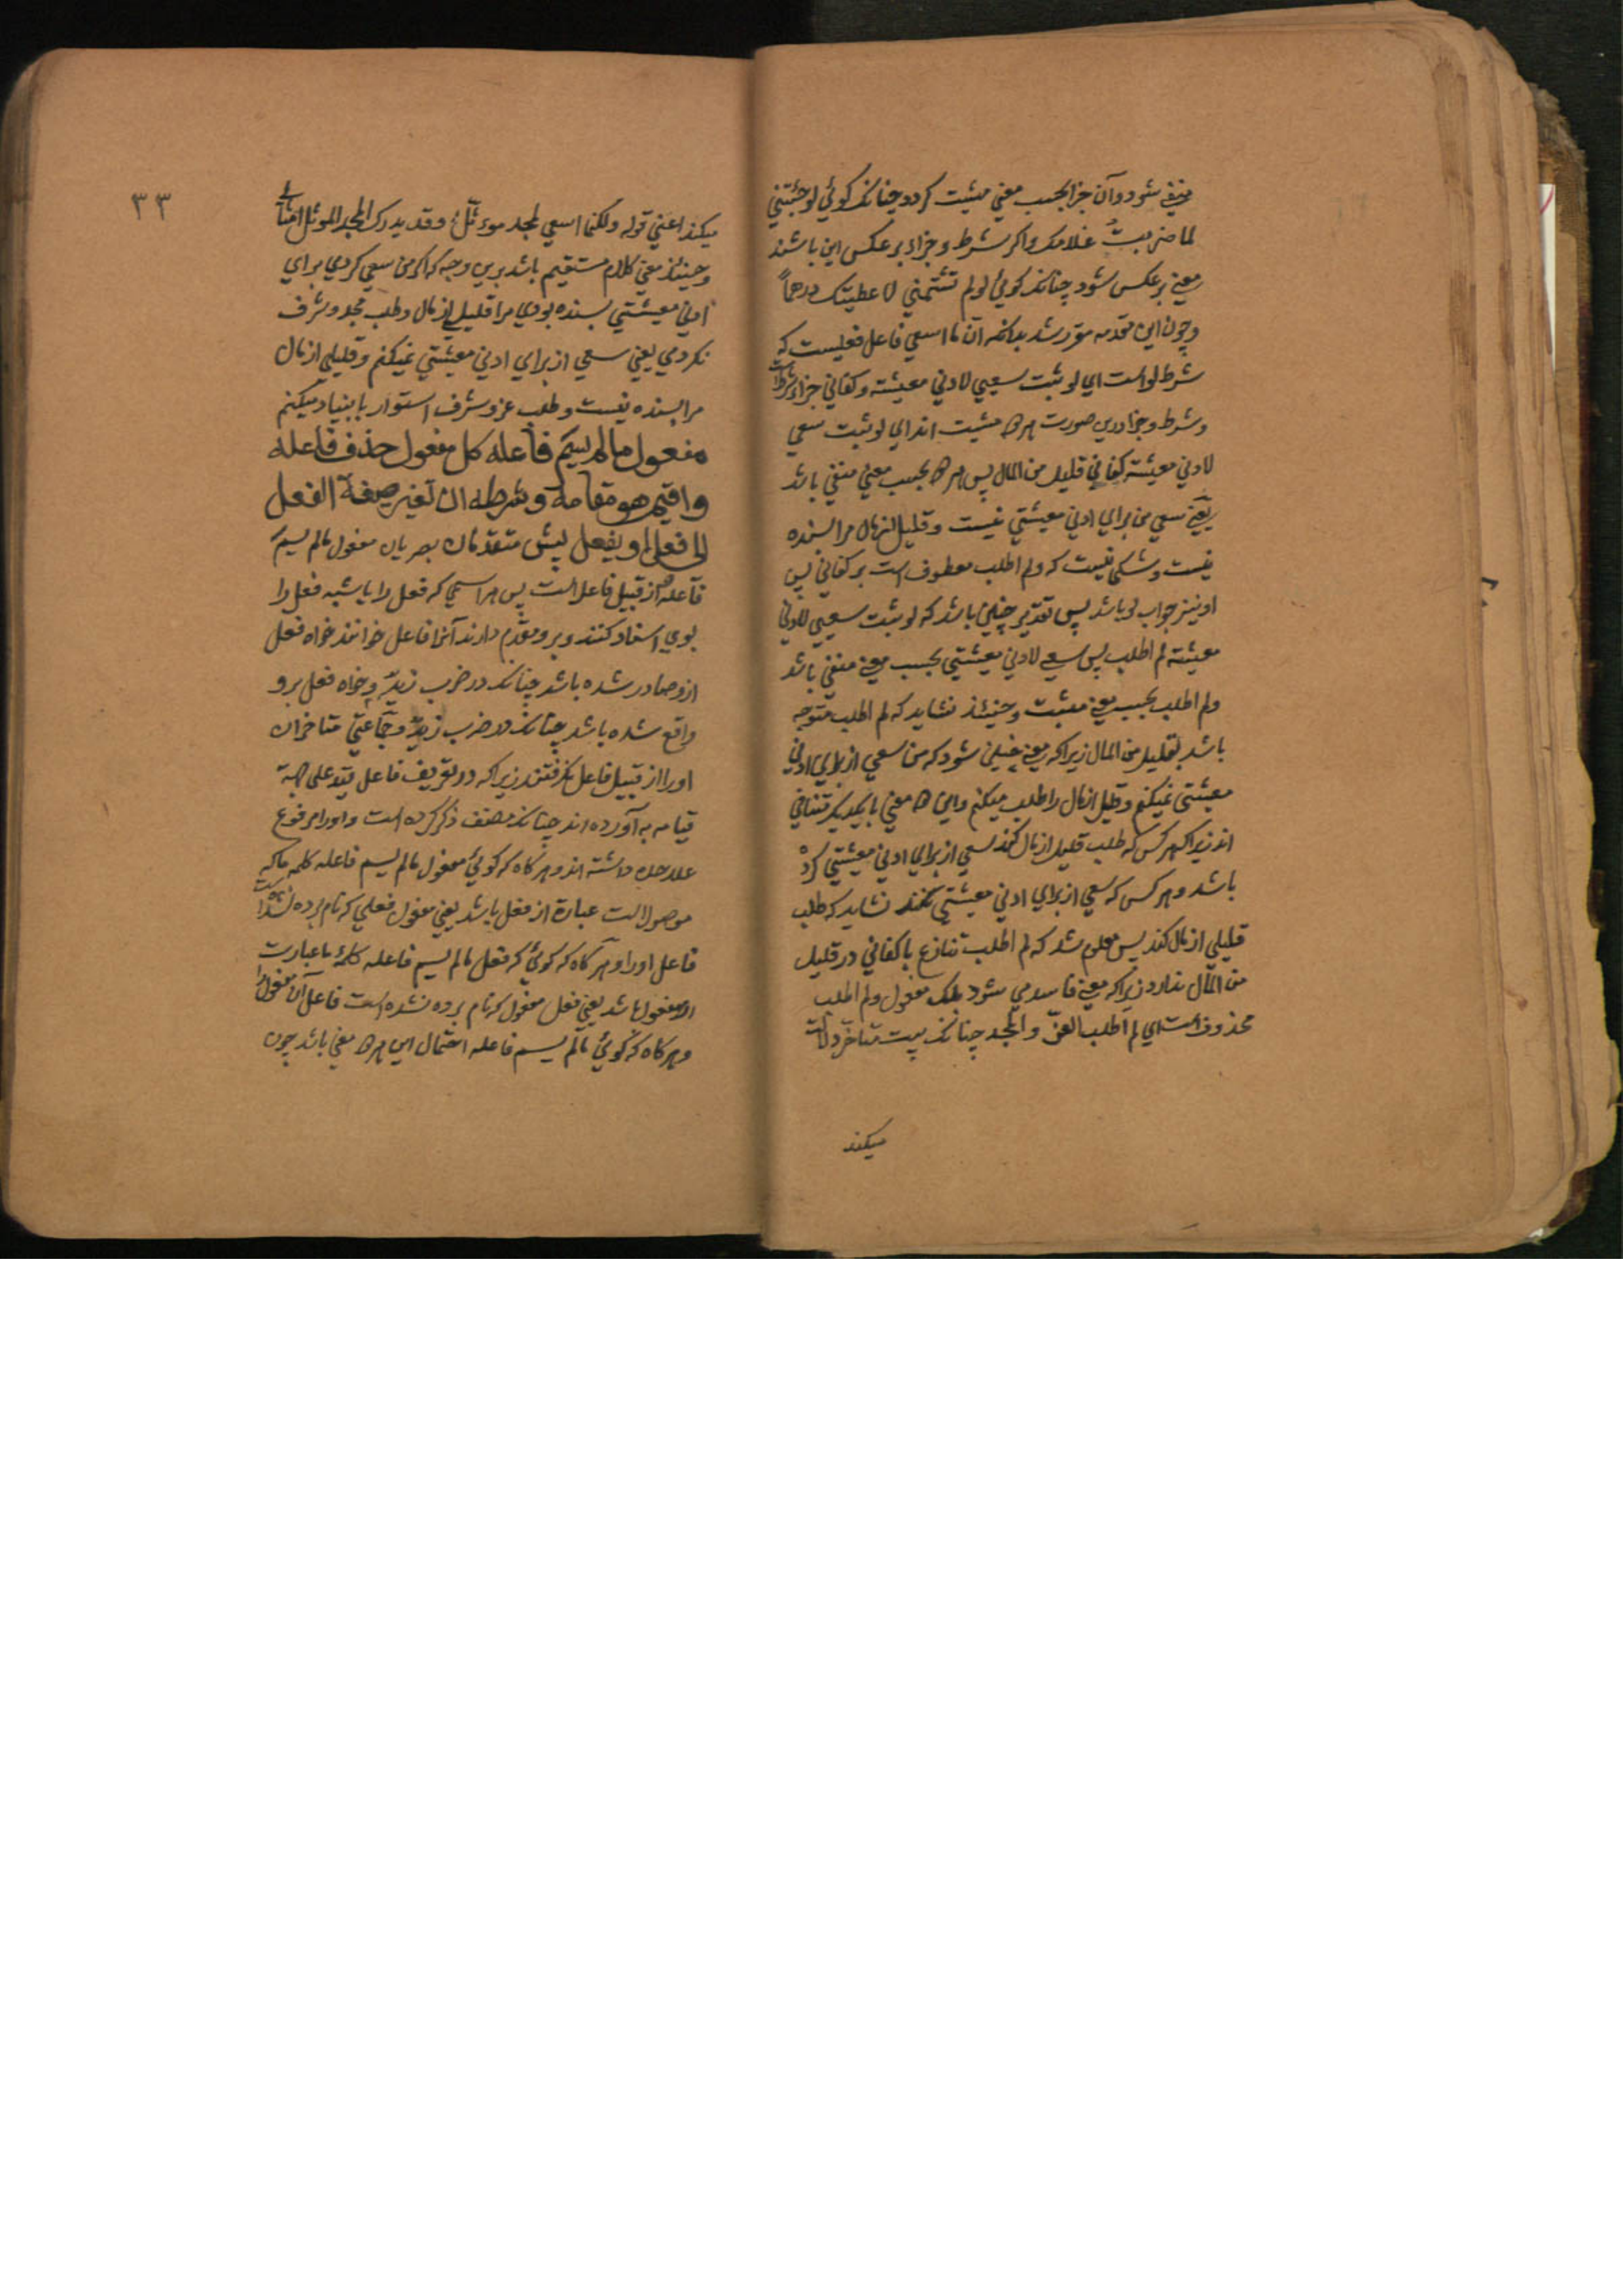 منفي شود و آن جزا بحسب معني مثبت كردد چنانكه كوئي لو جئتني
لما ضربت غلامك و اكر شرط و جزا بر عكس اين باشند
معني بر عكس شود چنانكه كوئي لو لم تشتمني لاعطيتك درهماً
و چون اين مقدمه مقرر شد بدانكه ان ما اسعي فاعل فعليست كه
شرط لو است اي لو ثبت سعيي لادني معيشة و كفاني جزاء شرط است
و شرط و جزا درين صورت هر دو مثبت اند اي لو ثبت سعيي
لادني معيشة كفاني قليل من المال پس هر دو بحسب معني منفي باشد
يعني سعي من براي ادني معيشتي نيست و قليل از مال مرا بسنده
نيست و شكي نيست كه و لم اطلب معطوف است بر كفاني پس
او نيز جواب لو باشد پس تقدير چنين باشد كه لو ثبت سعيي لادني
معيشة لم اطلب پس سعي لادني معيشتي بحسب معني منفي باشد
و لم اطلب بحسب معني مثبت و حينئذ نشايد كه لم اطلب متوجه
باشد بقليل من المال زيرا كه معني چنين شود كه من سعي از براي ادني
معيشتي نميكنم و قليل از مال را طلب ميكنم و اين دو معني با يكديكر متنافي
اند زيرا كه هر كس كه طلب قليل از مال كند سعي از براي ادني معيشتي كرده
باشد و هر كس كه سعي از براي ادني معيشتي نكند نشايد كه طلب
قليلي از مال كند پس معلوم شد كه لم اطلب تنازع با كفاني در قليل
من المال ندارد زيرا كه معني فاسد مي شود بلكه مفعول و لم اطلب
محذوف است اي لم اطلب العزّ و المجد چنانكه بيت متاخر دلالت
ميكند
٣٣
ميكند اعني قوله و لكنما اسعي لمجد موءثّل و قد يدرك المجد الموثل امثالي
و حينئذ معني كلام مستقيم باشد برين وجه كه اكر من سعي كردمي براي
ادني معيشتي بسنده بودي مرا قليلي از مال و طلب مجد و شرف
نكردمي يعني سعي از براي ادني معيشتي نميكنم و قليلي از مال
مرا بسنده نيست و طلب عز و شرف استوار با بنياد ميكنم
مفعول ما لم يسمّ فاعله كل مفعول حذف فاعله
و اقيم هو مقامه و شرطه ان تغير صيغة الفعل
الي فعل او يفعل پيش متقدمان بصريان مفعول ما لم يسمّ
فاعله از قبيل فاعل است پس هر اسمي كه فعل را يا شبه فعل را
بوي اسناد كنند و برو مقدم دارند آنرا فاعل خوانند خواه فعل
ازو صادر شده باشد چنانكه در ضرب زيدٌ و خواه فعل برو
واقع شده باشد چنانكه در ضرب زيدٌ و جماعتي متاخران
او را از قبيل فاعل نكرفتند زيرا كه در تعريف فاعل قيد علي جهة
قيامه به آورده اند چنانكه مصنف ذكر كرده است و او را مرفوع
علاحده داشته اند و هركاه كه كوئي مفعول ما لم يسم فاعله كلمه ما كه
موصول است عبارة از فعل باشد يعني مفعول فعلي كه نام برده نشده است
فاعل او را و هركاه كه كوئي كه فعل ما لم يسم فاعله كلمۀ ما عبارت
از مفعول باشد يعني فعل مفعول كه نام برده نشده است فاعل آن مفعول را
و هركاه كه كوئي ما لم يسم فاعله احتمال اين هر دو معني باشد چون